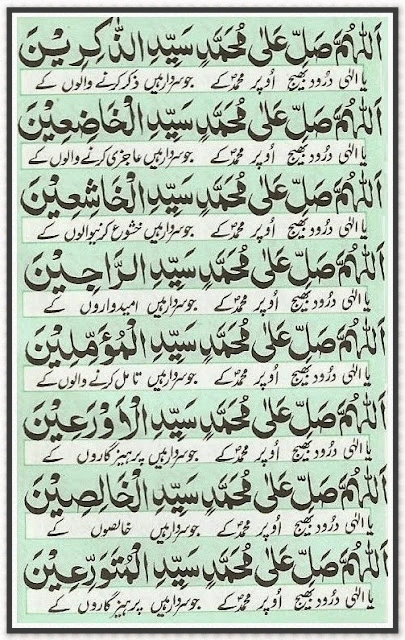 اَللّٰهُمَّ صَلِّ عَلٰى مُحَمَّدٍ سَيِّدِ الذَّاكِرِيْنَ
یا الٰہی درود بھیج اُوپر محمدؐ کے جو سردار ہیں ذکر کرنے والوں کے
اَللّٰهُمَّ صَلِّ عَلٰى مُحَمَّدٍ سَيِّدِ الْخَاضِعِيْنَ
یا الٰہی درود بھیج اُوپر محمدؐ کے جو سردار ہیں عاجزی کرنے والوں کے
اَللّٰهُمَّ صَلِّ عَلٰى مُحَمَّدٍ سَيِّدِ الْخَاشِعِيْنَ
یا الٰہی درود بھیج اُوپر محمدؐ کے جو سردار ہیں خشوع کرنیوالوں کے
اَللّٰهُمَّ صَلِّ عَلٰى مُحَمَّدٍ سَيِّدِ الرَّاجِيْنَ
یا الٰہی درود بھیج اُوپر محمدؐ کے جو سردار ہیں امیدواروں کے
اَللّٰهُمَّ صَلِّ عَلٰى مُحَمَّدٍ سَيِّدِ الْمُؤَمِّلِيْنَ
یا الٰہی درود بھیج اُوپر محمدؐ کے جو سردار ہیں تامل کرنے والوں کے
اَللّٰهُمَّ صَلِّ عَلٰى مُحَمَّدٍ سَيِّدِ الْاَوْرَعِيْنَ
یا الٰہی درود بھیج اُوپر محمدؐ کے جو سردار ہیں پرہیز گاروں کے
اَللّٰهُمَّ صَلِّ عَلٰى مُحَمَّدٍ سَيِّدِ الْخَالِصِيْنَ
یا الٰہی درود بھیج اُوپر محمدؐ کے جو سردار ہیں خالصوں کے
اَللّٰهُمَّ صَلِّ عَلٰى مُحَمَّدٍ سَيِّدِ الْمُتَوَرِّعِيْنَ
یا الٰہی درود بھیج اُوپر محمدؐ کے جو سردار ہیں پرہیز گاروں کے